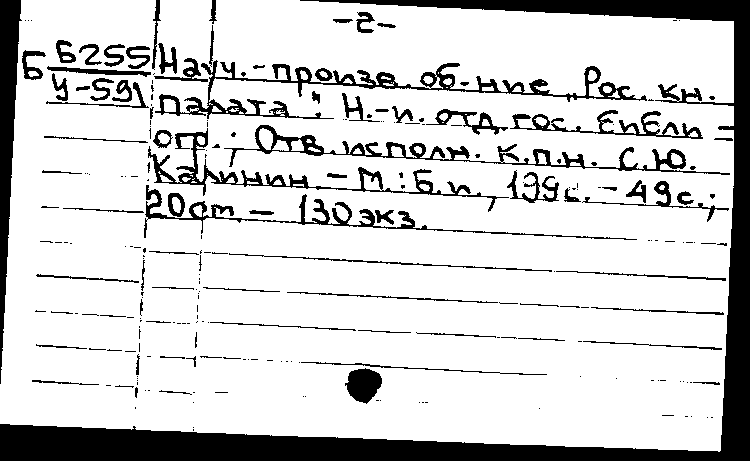 -2-
Б Б255 Науч.-произв. об-ние „Рос. кн.
У-591 палата": Н.-и. отд. гос. библи=
огр.; Отв. исполн. к.п.н. С.Ю.
Калинин. - М.: Б.и., 199с. - 49с.;
20cm. - 130 экз.